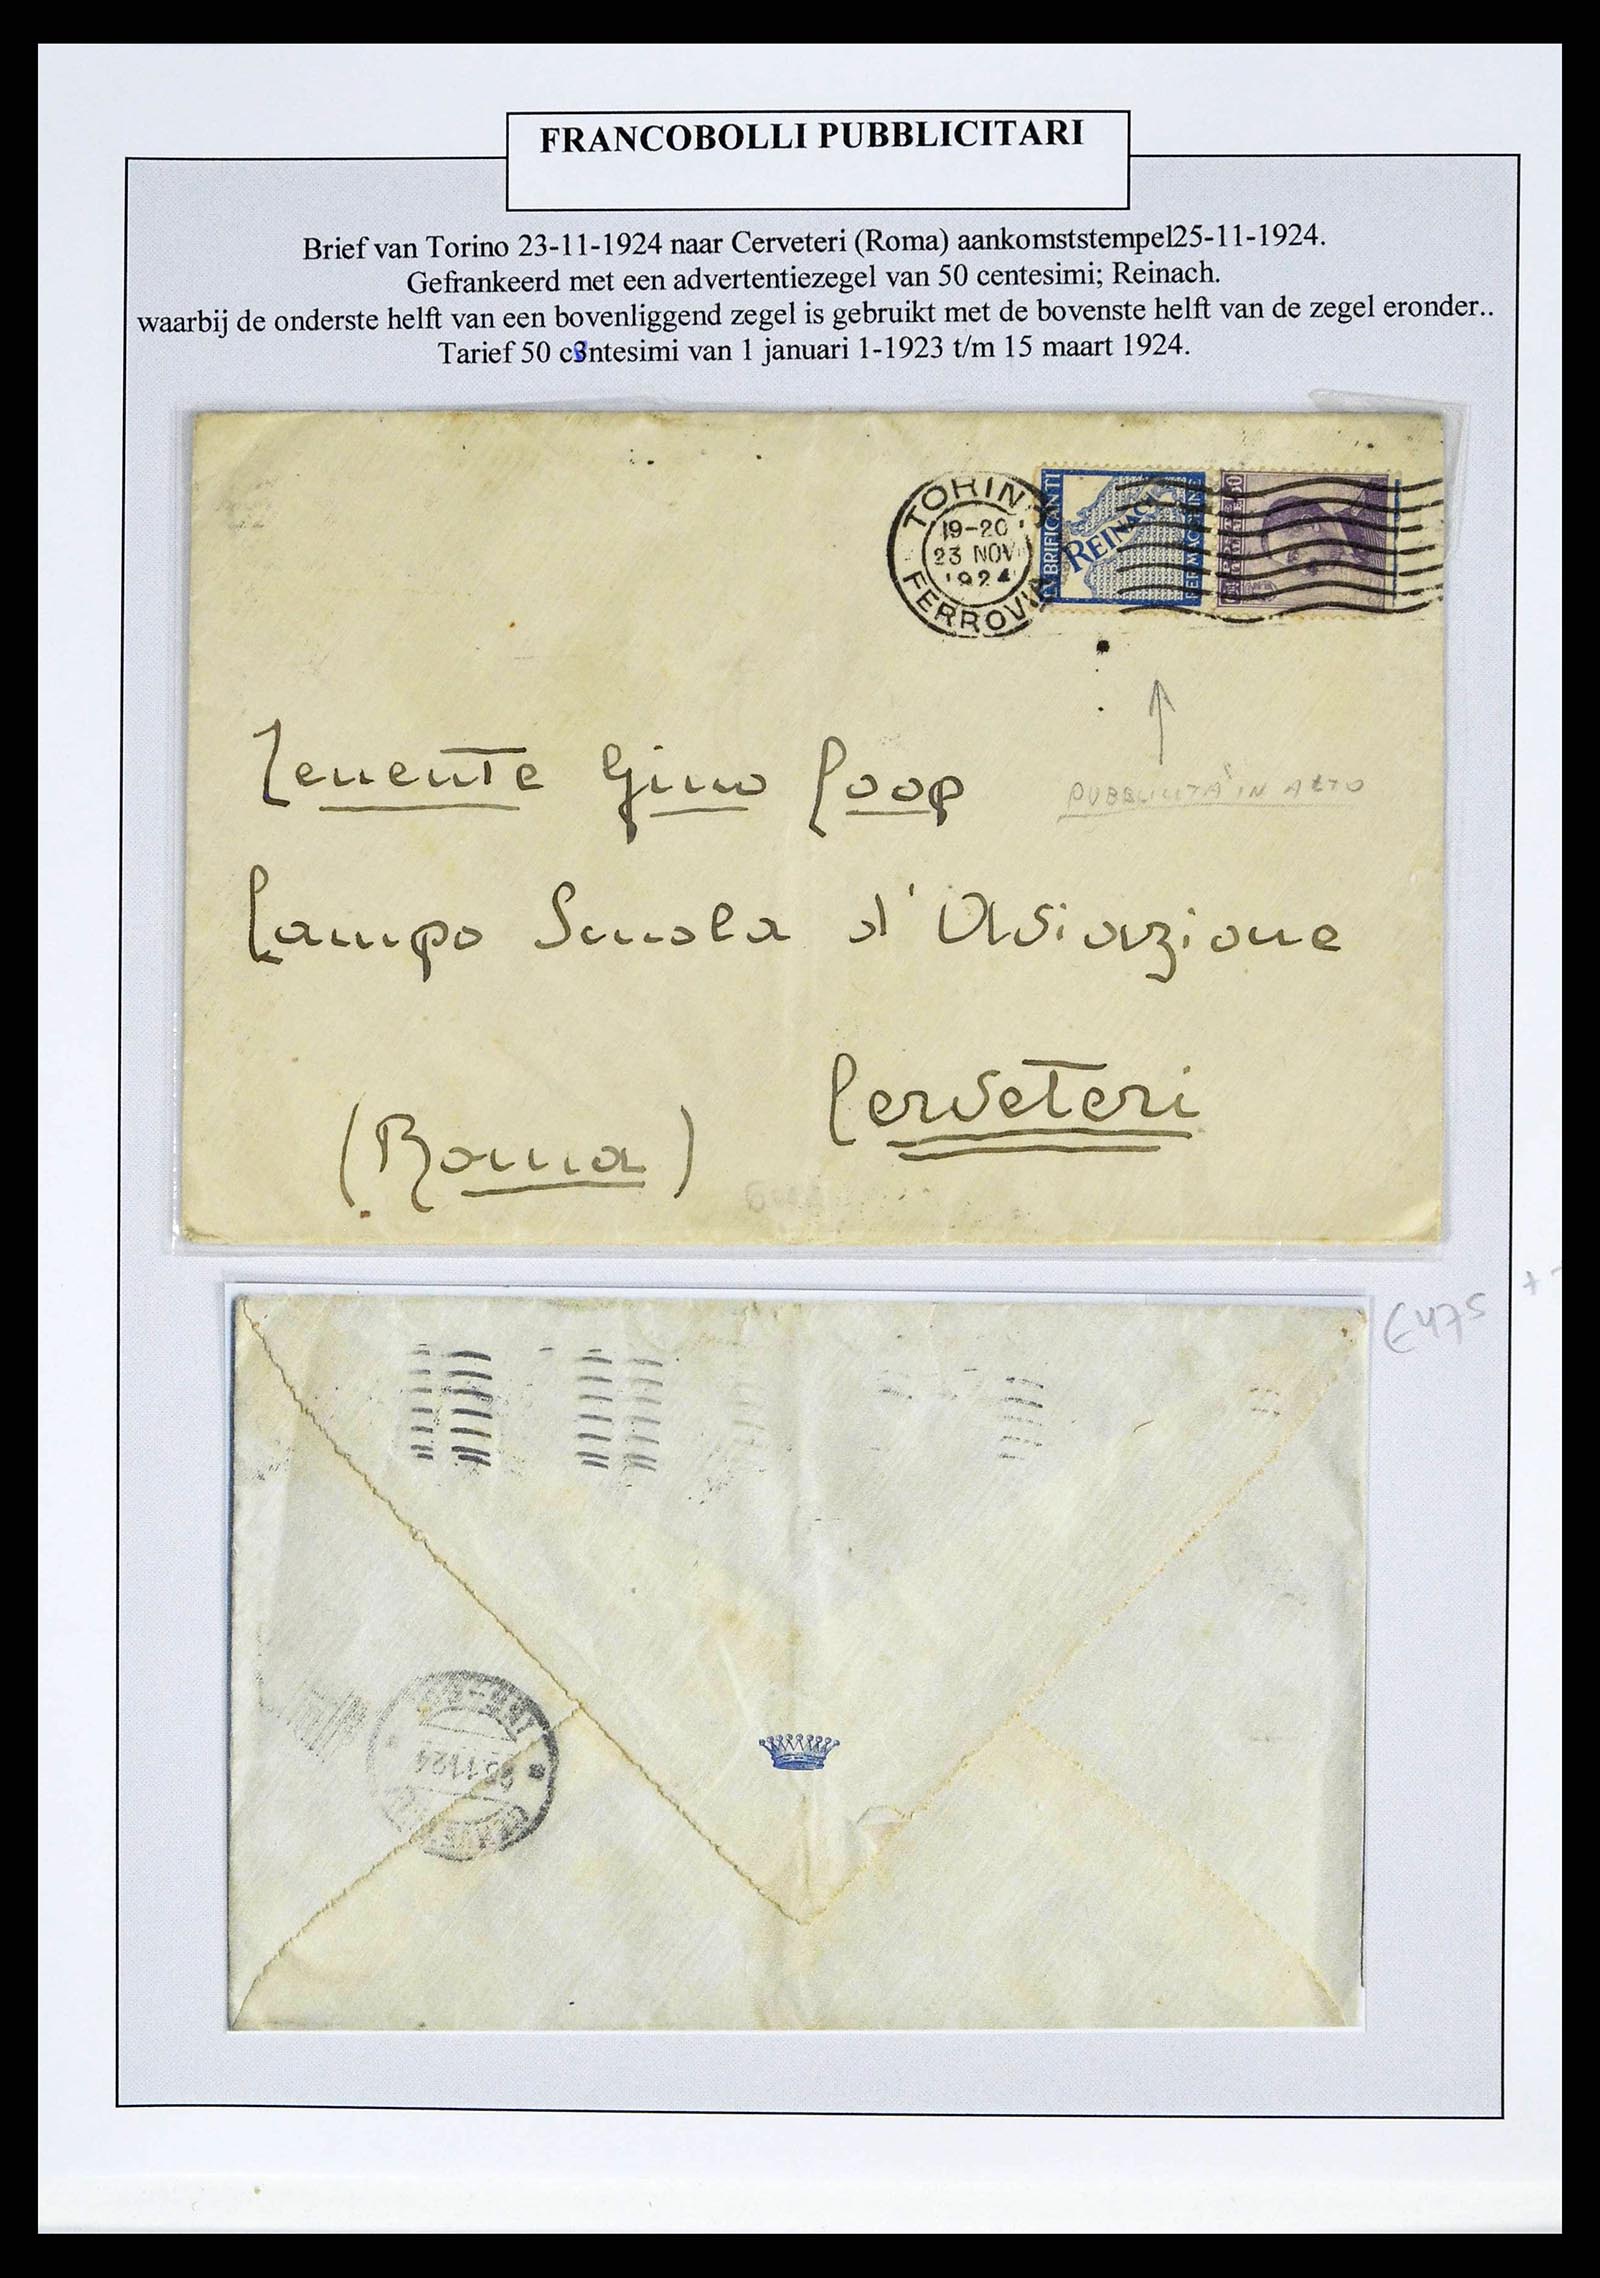 FRANCOBOLLI PUBBLICITARI
Brief van Torino 23-11-1924 naar Cerveteri (Roma) aankomststempel25-11-1924.
Gefrankeerd met een advertentiezegel van 50 centesimi; Reinach.
waarbij de onderste helft van een bovenliggend zegel is gebruikt met de bovenste helft van de zegel eronder..
Tarief 50 centesimi van 1 januari 1-1923 t/m 15 maart 1924.
TORINO
19-20
23 NOV
1924
FERROVIA
LUBRIFICANTI
REINACH
PER MACCHINE
PUBBLICITÀ IN ALTO
Tenente Gino Coop
Campo Scuola d'Aviazione
Cerveteri
(Roma)
€475
25.11.24